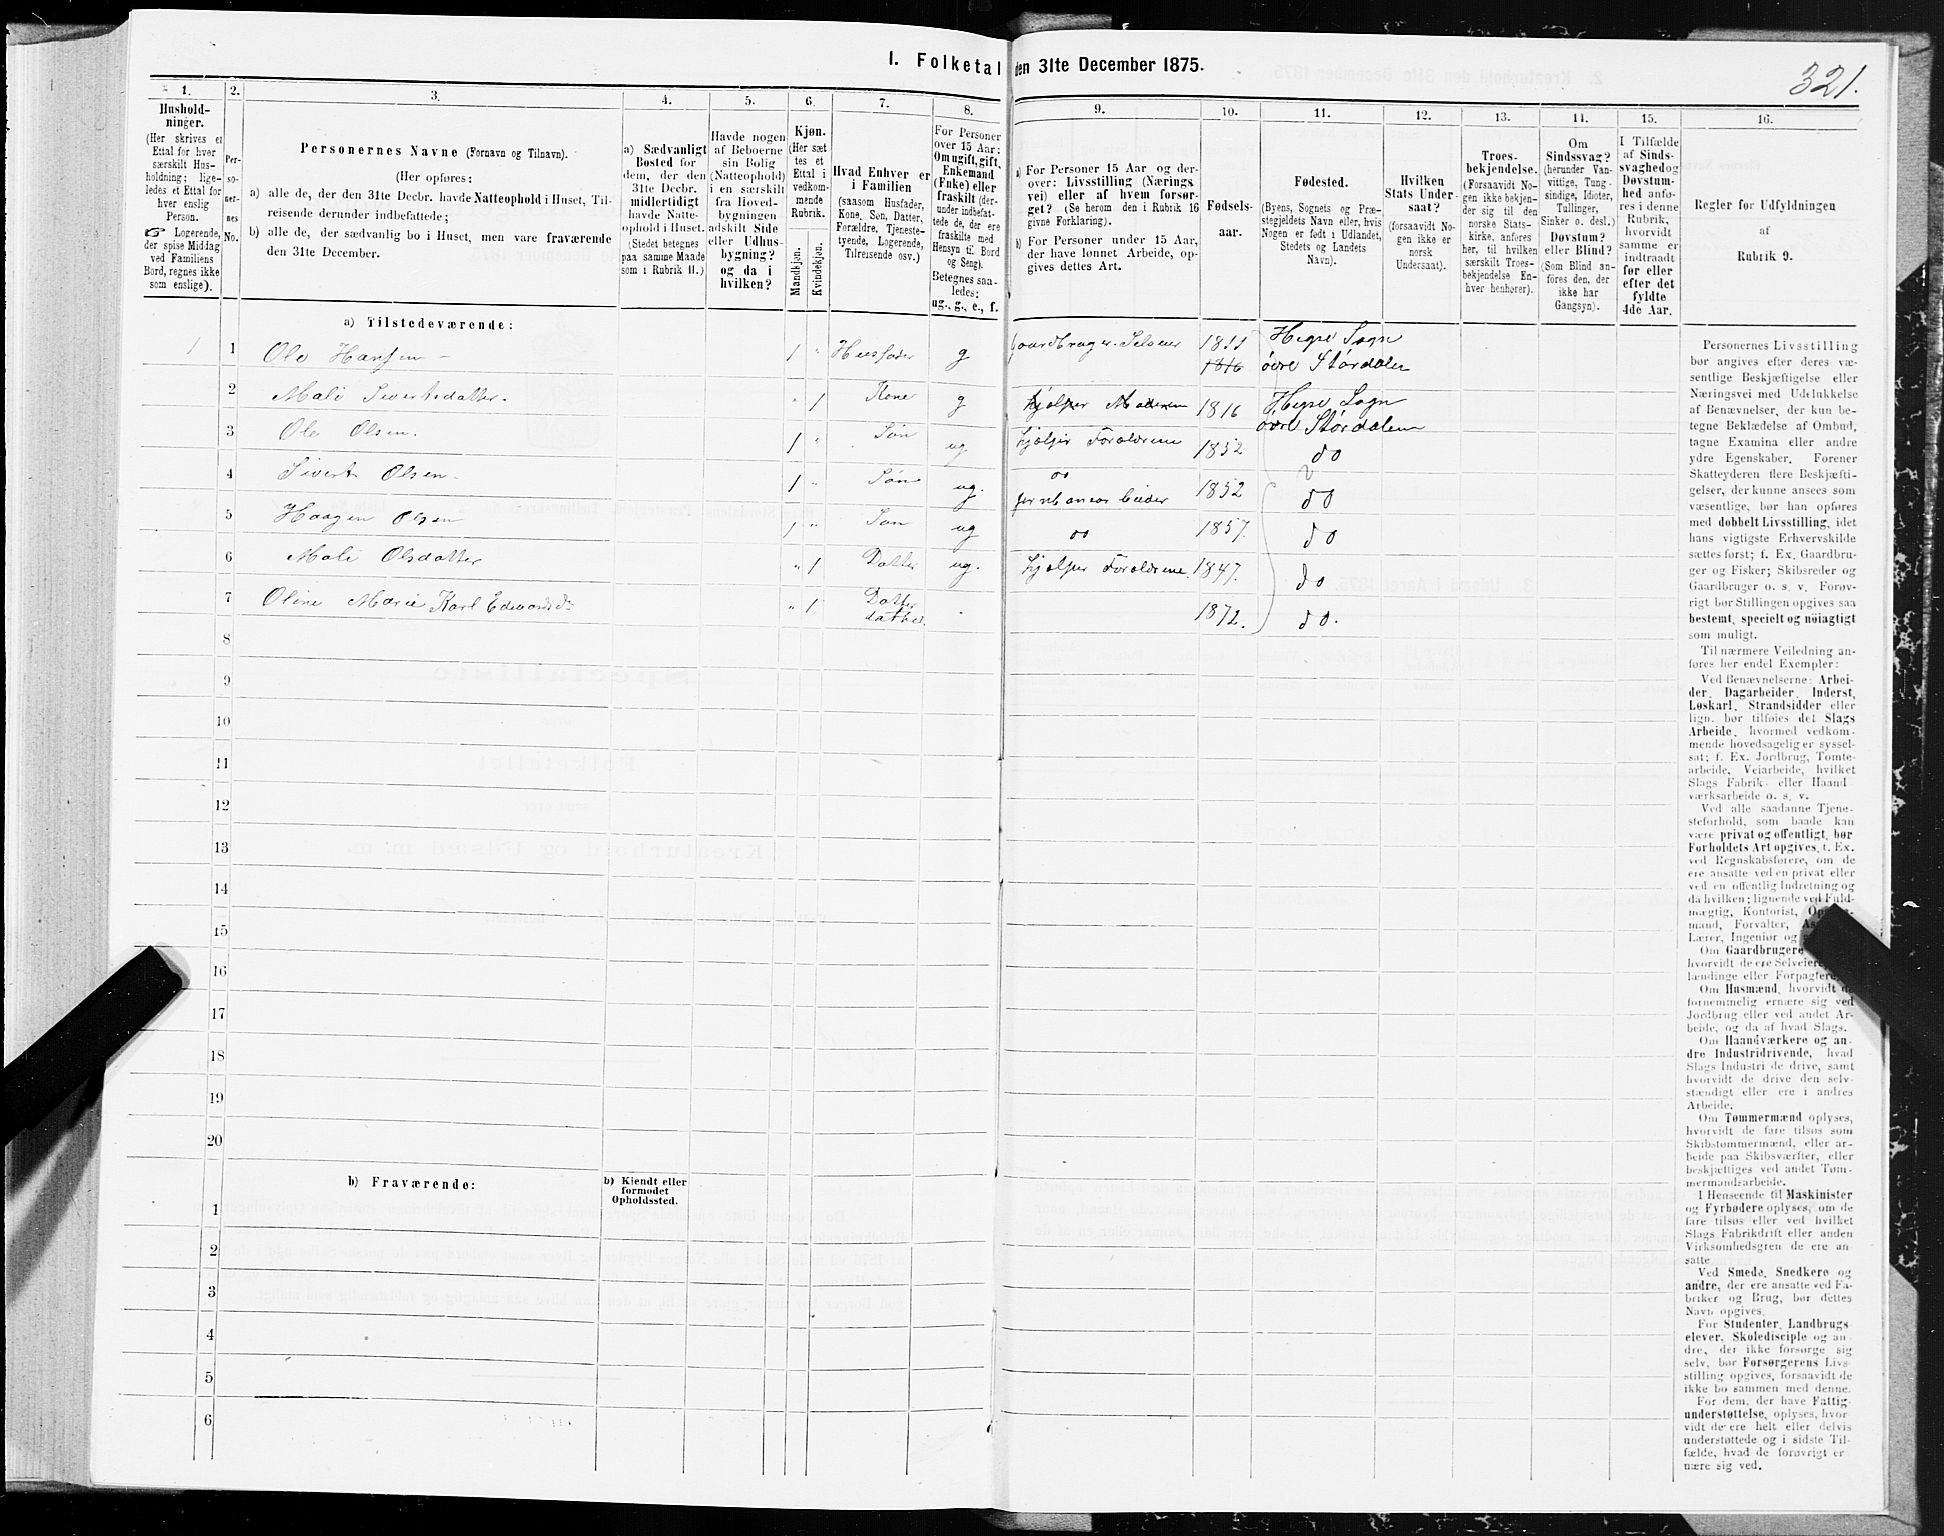 I. Folketal den 31te December 1875.
321.
1.
Hushold-
ninger.
(Her skrives et
Ettal for hver
særskilt Hus-
holdning; lige-
ledes et Ettal for
hver enslig
Person.
☞ Logerende,
der spise Middag
ved Familiens
Bord, regnes ikke
som enslige).
2.
Per-
so-
ner-
nes
No.
3.
Personernes Navne (Fornavn og Tilnavn).
(Her opføres:
a) alle de, der den 31te Decbr. havde Natteophold i Huset, Til-
reisende derunder indbefattede;
b) alle de, der sædvanlig bo i Huset, men vare fraværende
den 31te December.
4.
a) Sædvanligt
Bosted for
dem, der den
31te Decbr.
midlertidigt
havde Natte-
ophold i Huset.
(Stedet betegnes
paa samme Maade
som i Rubrik 11.)
5.
Havde nogen
af Beboerne
sin Bolig
(Natteophold)
i en særskilt
fra Hoved-
bygningen
adskilt Side
eller Udhus-
bygning?
og da i
hvilken?
6.
Kjøn.
(Her sæt-
tes et
Ettal i
vedkom-
mende
Rubrik.
Mandkjøn.
Kvindekjøn.
7.
Hvad Enhver er
i Familien
(saasom Husfader,
Kone, Søn, Datter,
Forældre, Tjeneste-
tyende, Logerende,
Tilreisende osv.)
8.
For Personer
over 15 Aar:
Om ugift, gift,
Enkemand
(Enke) eller
fraskilt (der-
under indbefat-
tede de, der ere
fraskilte med
Hensyn til Bord
og Seng).
Betegnes saa-
ledes:
ug., g., e., f.
9.
a) For Personer 15 Aar og der-
over: Livsstilling (Nærings
vei) eller af hvem forsør-
get? (Se herom den i Rubrik 16
givne Forklaring).
b) For Personer under 15 Aar,
der have lønnet Arbeide, op-
gives dettes Art.
10.
Fødsels-
aar.
11.
Fødested.
(Byens, Sognets og Præ-
stegjeldets Navn eller, hvis
Nogen er født i Udlandet,
Stedets og Landets
Navn).
12.
Hvilken
Stats Under-
saat?
(forsaavidt No-
gen ikke er
norsk
Undersaat).
13.
Troes-
bekjendelse.
(Forsaavidt No-
gen ikke bekjen-
der sig til den
norske Stats-
kirke, anføres
her, til hvilken
særskilt Troes-
bekjendelse En-
hver henhører).
14.
Om
Sindssvag?
(herunder Van-
vittige, Tung-
sindige, Idioter,
Tullinger,
Sinker o. desl.)
Døvstum?
eller Blind?
(Som Blind an-
føres den, der
ikke har
Gangsyn).
15.
I Tilfælde
af Sinds-
svaghed og
Døvstum-
hed anfø-
res i denne
Rubrik,
hvorvidt
samme er
indtraadt
før eller
efter det
fyldte
4de Aar.
16.
Regler for Udfyldningen
af
Rubrik 9.
a) Tilstedeværende:
1 1 Ole Hansen 1 " Husfader g Gaardbruger. Selveier 1811 1816 Hegre Sogn øvre Størdalen
2 Mali Sivertsdatter. " 1 Kone g hjælper Manden 1816 Hegre Sogn øvre Størdalen
3 Ole Olsen. 1 " Søn ug hjælper Forældrene 1852 do
4 Sivert Olsen 1 " Søn ug. do 1852 do
5 Haagen Olsen 1 " Søn ug do 1857. do
6 Mali Olsdatter " 1 Datter ug. hjælper Forældrene. 1847. do
7 Oline Marie Karl Edvardsd: " 1 Datter datter. 1872. do.
8
9
10
11
12
13
14
15
16
17
18
19
20
b) Fraværende:
b) Kjendt eller
formodet
Opholdssted.
1
2
3
4
5
6
Personernes Livsstilling
bør angives efter deres væ-
sentlige Beskjæftigelse eller
Næringsvei med Udelukkelse
af Benævnelser, der kun be-
tegne Beklædelse af Ombud,
tagne Examina eller andre
ydre Egenskaber. Forener
Skatteyderen flere Beskjæfti-
gelser, der kunne ansees som
væsentlige, bør han opføres
med dobbelt Livsstilling, idet
hans vigtigste Erhvervskilde
sættes først; f. Ex. Gaardbru-
ger og Fisker; Skibsreder og
Gaardbruger o. s. v. Forøv-
rigt bør Stillingen opgives saa
bestemt, specielt og nøiagtigt
som muligt.
Til nærmere Veiledning an-
føres her endel Exempler:
Ved Benævnelserne: Arbei-
der, Dagarbeider, Inderst,
Løskarl, Strandsidder eller
lign. bør tilføies det Slags
Arbeide, hvormed vedkom-
mende hovedsagelig er syssel-
sat; f. Ex. Jordbrug, Tomte-
arbeide, Veiarbeide, hvilket
Slags Fabrik- eller Haand-
værksarbeide o. s. v.
Ved alle saadanne Tjene-
steforhold, som baade kan
være privat og offentligt, bør
Forholdets Art opgives, t. Ex.
ved Regnskabsførere, om de
ere ansatte ved en privat eller
ved en offentlig Indretning og
da hvilken; lignende ved Fuld-
mægtig, Kontorist,
mand, Forvalter,
Lærer, Ingeniør og
Om Gaardbrugere
hvorvidt de ere Selveiere,
lændinge eller Forpagtere.
Om Husmænd, hvorvidt de
fornemmelig ernære sig ved
Jordbrug eller ved andet Ar-
beide, og da af hvad Slags.
Om Haandværkere og an-
dre Industridrivende, hvad
Slags Industri de drive, samt
hvorvidt de drive den selv-
stændigt eller ere i andres
Arbeide.
Om Tømmermænd oplyses,
hvorvidt de fare tilsøs som
Skibstømmermænd, eller ar-
beide paa Skibsværfter, eller
beskjæftiges ved andet Tøm-
mermandsarbeide.
I Henseende til Maskinister
og Fyrbødere oplyses, om de
fare tilsøs eller ved hvilket
Slags Fabrikdrift eller anden
Virksomhedsgren de ere an-
satte.
Ved Smede, Snedkere og
andre, der ere ansatte ved Fa-
briker og Brug, bør dettes
Navn opgives.
For Studenter, Landbrugs-
elever, Skoledisciple og an-
dre, der ikke forsørge sig
selv, bør Forsørgerens Livs-
stilling opgives, forsaavidt de
ikke bo sammen med denne.
For dem, der have Fattig-
understøttelse, oplyses, hvor-
vidt de ere helt eller delvis
understøttede og i sidste Til-
fælde, hvad de forøvrigt er-
nære sig ved.